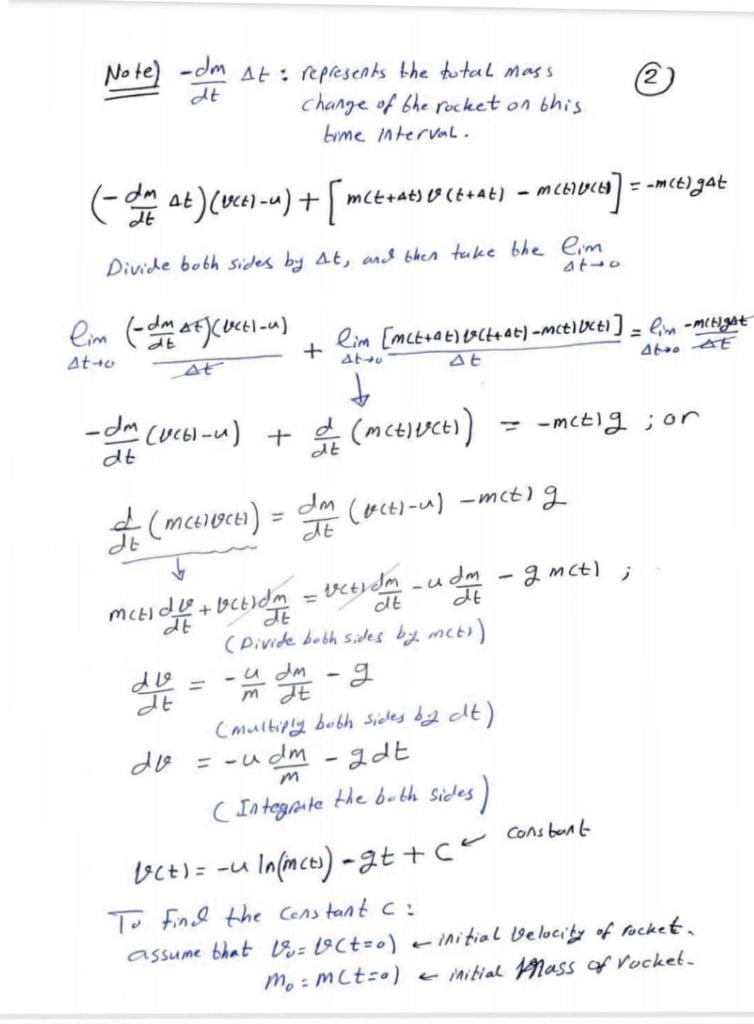 Note) -dm/dt Δt : represents the total mass
②
change of the rocket on this
time interval.
(-dm/dt Δt)(v(t)-u) + [m(t+Δt)v(t+Δt) - m(t)v(t)] = -m(t)gΔt
Divide both sides by Δt, and then take the lim Δt→0
lim Δt→0 (-dm/dt Δt)(v(t)-u)/Δt + lim Δt→0 [m(t+Δt)v(t+Δt)-m(t)v(t)]/Δt = lim Δt→0 -m(t)gΔt/Δt
↓
-dm/dt (v(t)-u) + d/dt (m(t)v(t)) = -m(t)g ; or
d/dt (m(t)v(t)) = dm/dt (v(t)-u) - m(t)g
↓
m(t) dv/dt + v(t)dm/dt = v(t)dm/dt - u dm/dt - g m(t) ;
(Divide both sides by m(t))
dv/dt = -u/m dm/dt - g
(multiply both sides by dt)
dv = -u dm/m - gdt
(Integrate the both sides)
v(t) = -u ln(m(t)) - gt + C ← constant
To find the constant C :
assume that v₀ = v(t=0) ← initial velocity of rocket.
m₀ = m(t=0) ← initial Mass of rocket.